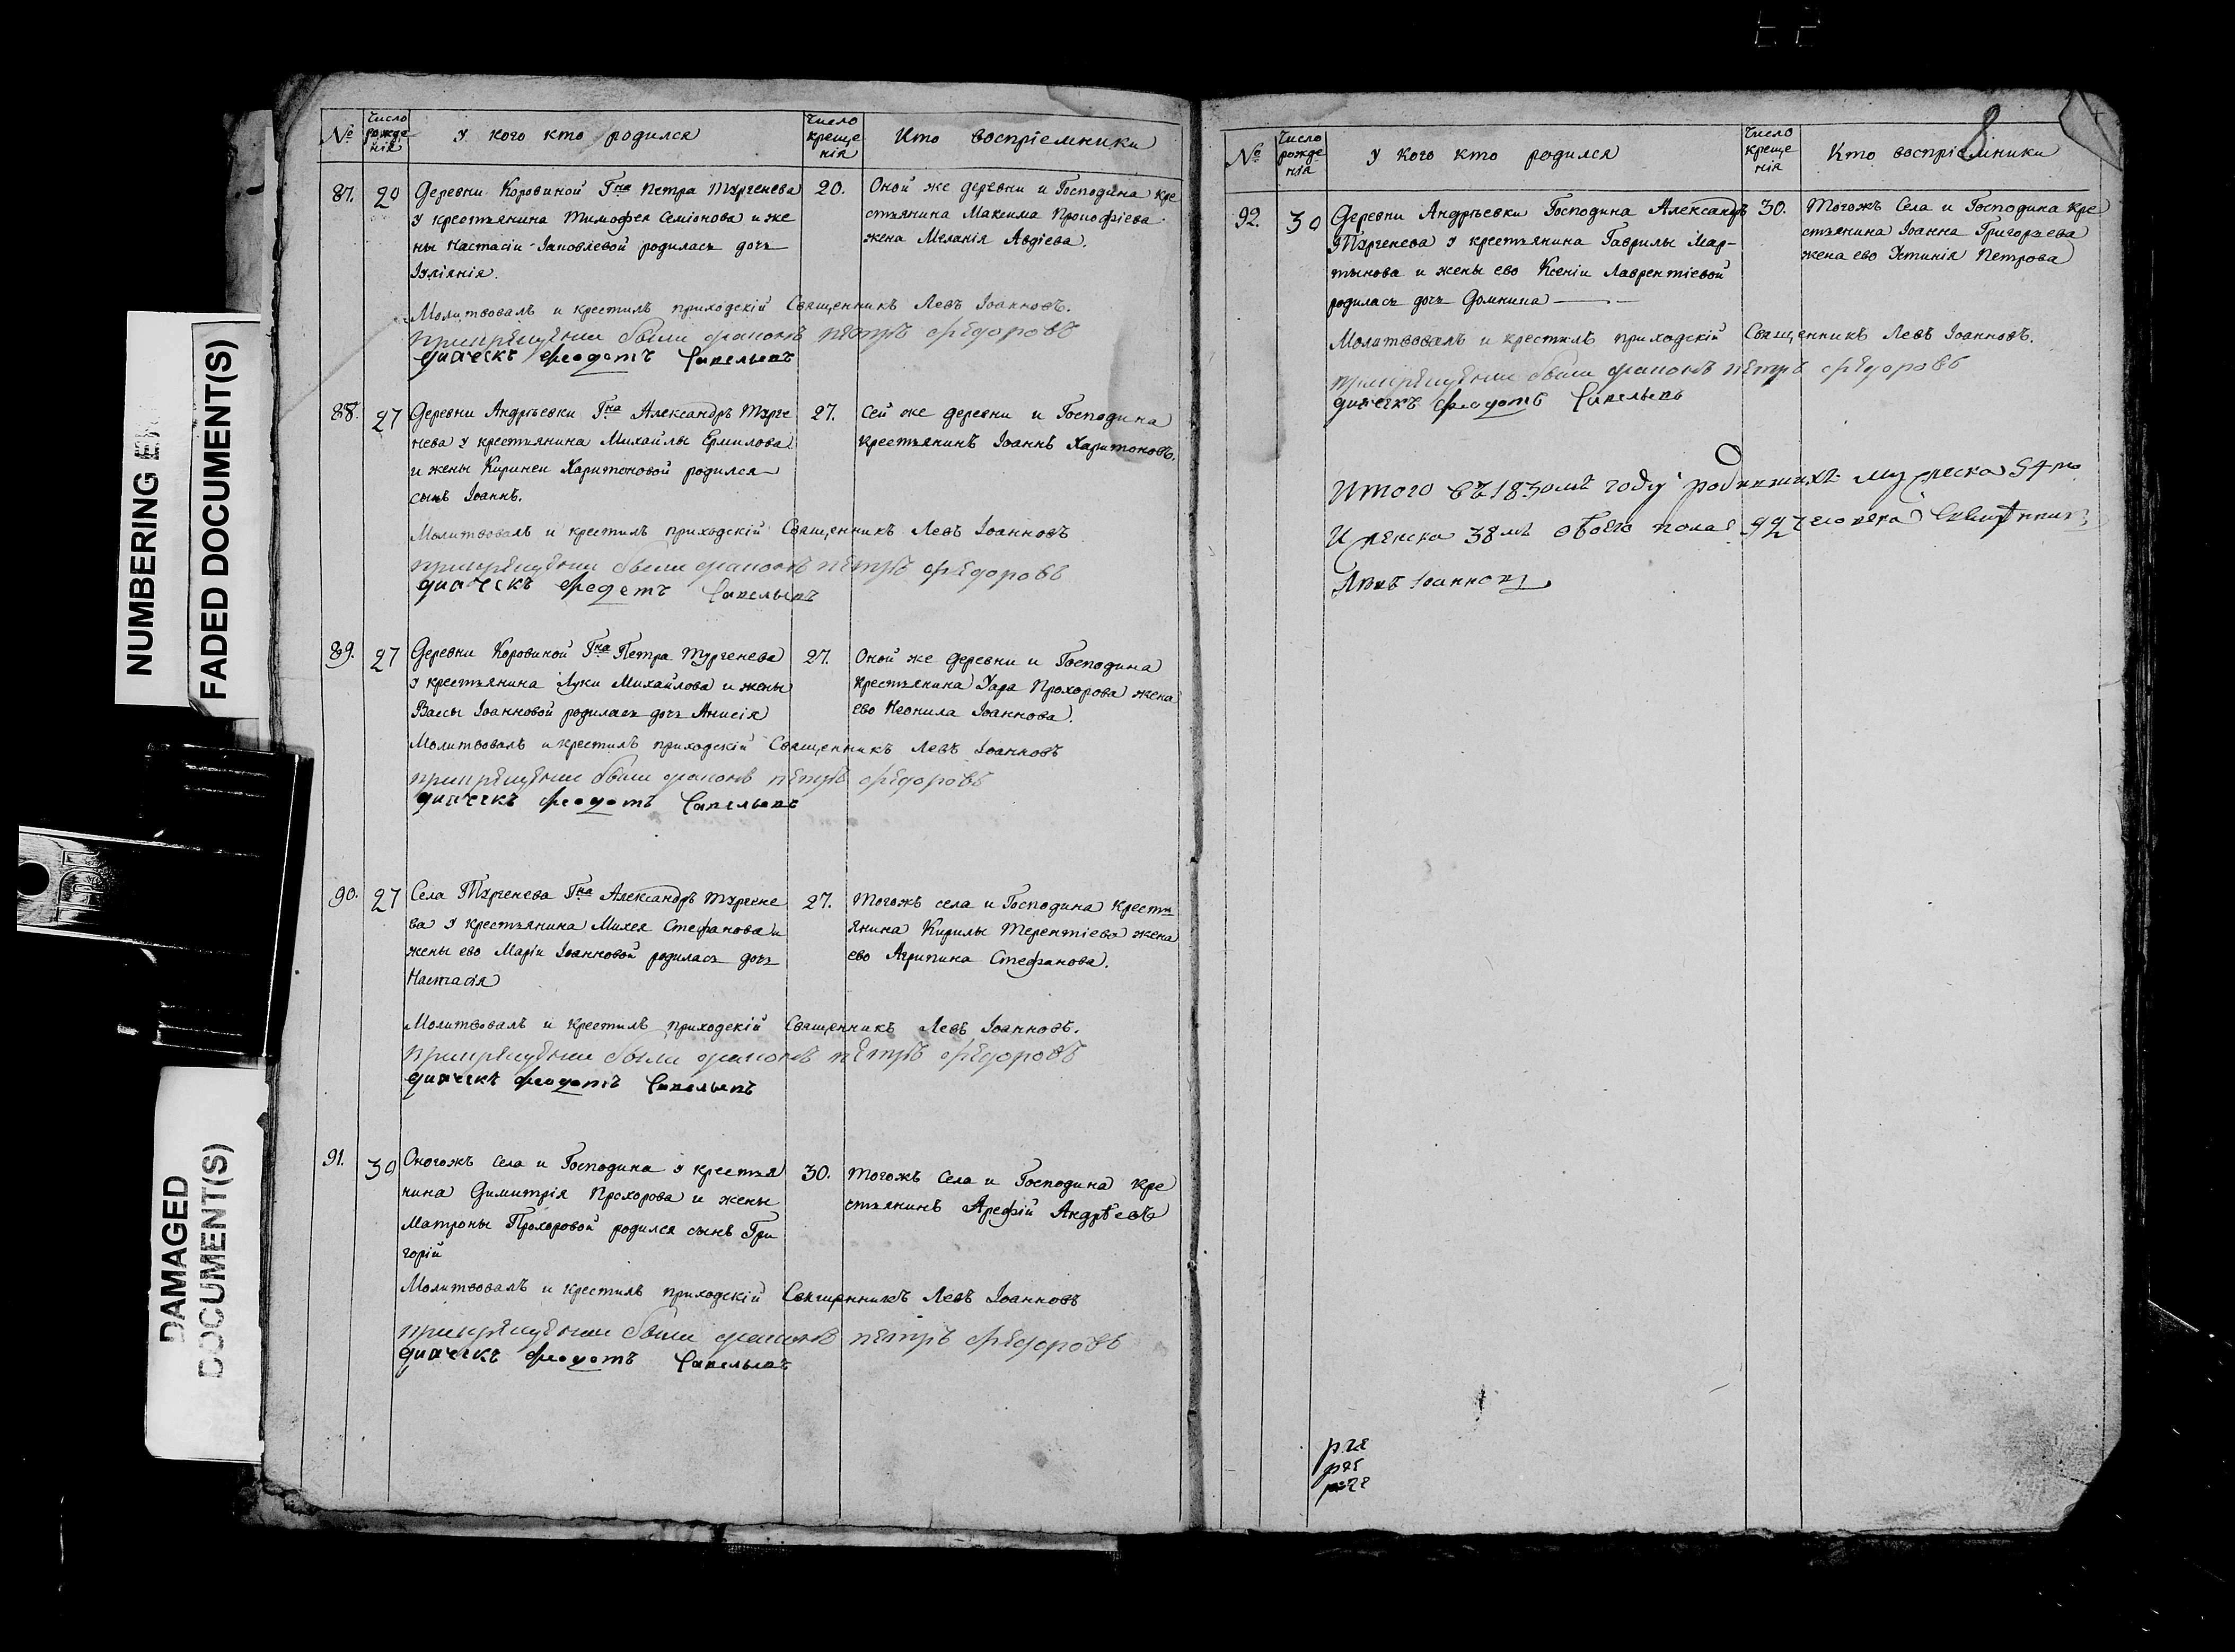 NUMBERING
FADED DOCUMENT(S)
DAMAGED
DOCUMENT(S)
№
Число рожде нія
У кого кто родился
Число креще нія
Кто воспріемники
87.
20
Деревни Коровиной Гна Петра Тургенева
у крестьянина Тимофея Семіонова и же
ны Настасіи Іаковлевой родилась дочь
Іуліянія.
20.
Оной же деревни и Господина кре
стьянина Максима Прокофіева
жена Меланія Авдіева.
Молитвовалъ и крестилъ приходскій Священникъ Левъ Іоанновъ.
при крещеніи были диаконъ петръ федоровъ
диячекъ феодотъ Савельевъ
88.
27
Деревни Андрѣевки Гна Александръ Турге
нева у крестьянина Михайлы Ермилова
и жены Киринеи Харитоновой родился
сынъ Іоаннъ.
27.
Сей же деревни и Господина
крестьянинъ Іоаннъ Харитоновъ.
Молитвовалъ и крестилъ приходскій Священникъ Левъ Іоанновъ
при крещеніи были диаконъ петръ федоровъ
диячекъ феодотъ Савельевъ
89.
27
Деревни Коровиной Гна Петра Тургенева
у крестьянина Луки Михайлова и жены
Вассы Іоанновой родилась дочь Анисія
27.
Оной же деревни и Господина
крестьянина Уара Прохорова жена
ево Неонила Іоаннова.
Молитвовалъ и крестилъ приходскій Священникъ Левъ Іоанновъ
при крещеніи были диаконъ петръ федоровъ
диячекъ феодотъ Савельевъ
90.
27
Села Тургенева Гна Александръ Тургене
ва у крестьянина Михея Стефанова и
жены ево Маріи Іоанновой родилась дочь
Настасія
27.
Тогожъ села и Господина крестъ
янина Кирилы Терентіева жена
ево Агрипина Стефанова.
Молитвовалъ и крестилъ приходскій Священникъ Левъ Іоанновъ.
при крещеніи были диаконъ петръ федоровъ
диячекъ феодотъ Савельевъ
91.
30
Оногожъ Села и Господина у крестья
нина Димитрія Прохорова и жены
Матроны Прохоровой родился сынъ Гри
горій
30.
Тогожъ Села и Господина кре
стьянинъ Арефій Андрѣевъ
Молитвовалъ и крестилъ приходскій Священникъ Левъ Іоанновъ
при крещеніи были диаконъ петръ федоровъ
диячекъ феодотъ Савельевъ
8
№
Число рожде нія
У кого кто родился
Число креще нія
Кто воспріемники
92.
30
Деревни Андрѣевки Господина Александръ
Тургенева у крестьянина Гаврилы Мар-
тынова и жены ево Ксеніи Лаврентіевой
родилась дочь Домнина
30.
Тогожъ Села и Господина кре
стьянина Іоанна Григорьева
жена ево Устинія Петрова
Молитвовалъ и крестилъ приходскій Священникъ Левъ Іоанновъ.
при крещеніи были диаконъ петръ федоровъ
диячекъ феодотъ Савельевъ
Итого въ 1830мъ году родившихъ мужеска 54ре
И женска 38мь обоего пола 92 человека Священникъ
Левъ Іоанновъ